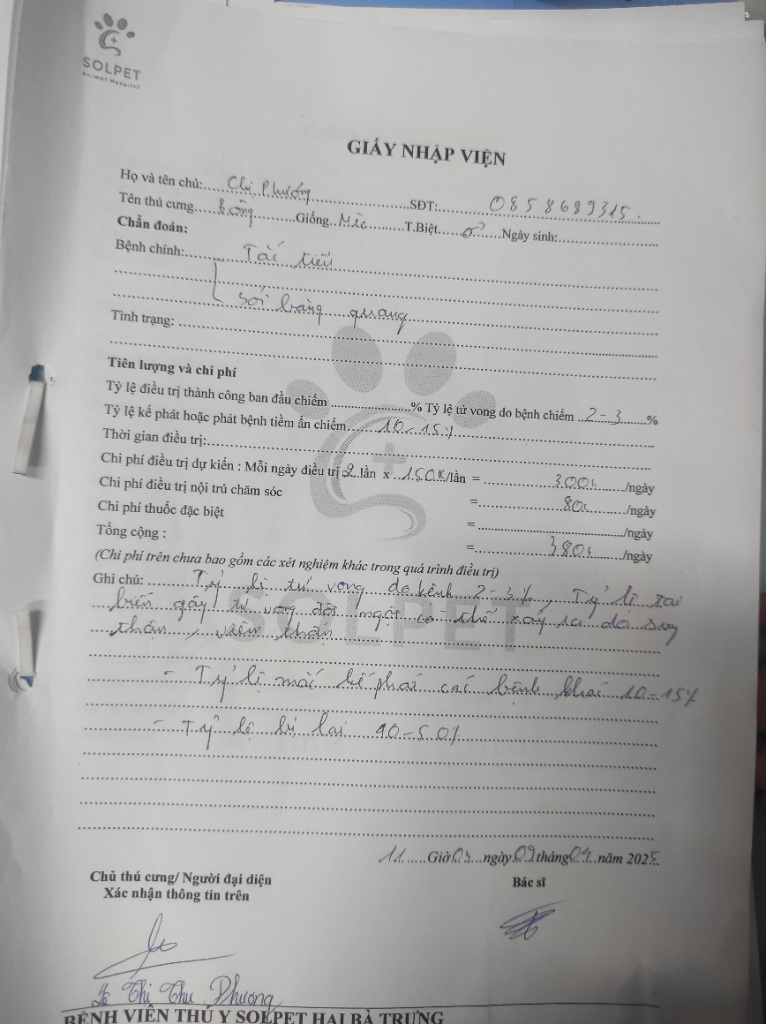 SOLPET
Animal Hospital
GIẤY NHẬP VIỆN
Họ và tên chủ: Chị Phương SĐT: 0858689315
Tên thú cưng Bông Giống Mèo T.Biệt ♂ Ngày sinh:
Chẩn đoán:
Bệnh chính: Tắc tiểu
Sỏi bàng quang
Tình trạng:
Tiên lượng và chi phí
Tỷ lệ điều trị thành công ban đầu chiếm % Tỷ lệ tử vong do bệnh chiếm 2-3 %
Tỷ lệ kế phát hoặc phát bệnh tiềm ẩn chiếm 10-15%
Thời gian điều trị:
Chi phí điều trị dự kiến : Mỗi ngày điều trị 2 lần x 150K/lần = 300k /ngày
Chi phí điều trị nội trú chăm sóc = 80k /ngày
Chi phí thuốc đặc biệt = /ngày
Tổng cộng : = 380k /ngày
(Chi phí trên chưa bao gồm các xét nghiệm khác trong quá trình điều trị)
Ghi chú: Tỷ lệ tử vong do bệnh 2-3%, Tỷ lệ tai
biến gây tử vong đột ngột có thể xảy ra do suy
thận, viêm thận
- Tỷ lệ mắc kế phát các bệnh khác 10-15%
- Tỷ lệ bị lại 40-50%
SOLPET
11 Giờ 05 ngày 09 tháng 04 năm 2025
Chủ thú cưng/ Người đại diện
Xác nhận thông tin trên
Bác sĩ
Thị Thu Phương
BỆNH VIỆN THÚ Y SOLPET HAI BÀ TRƯNG